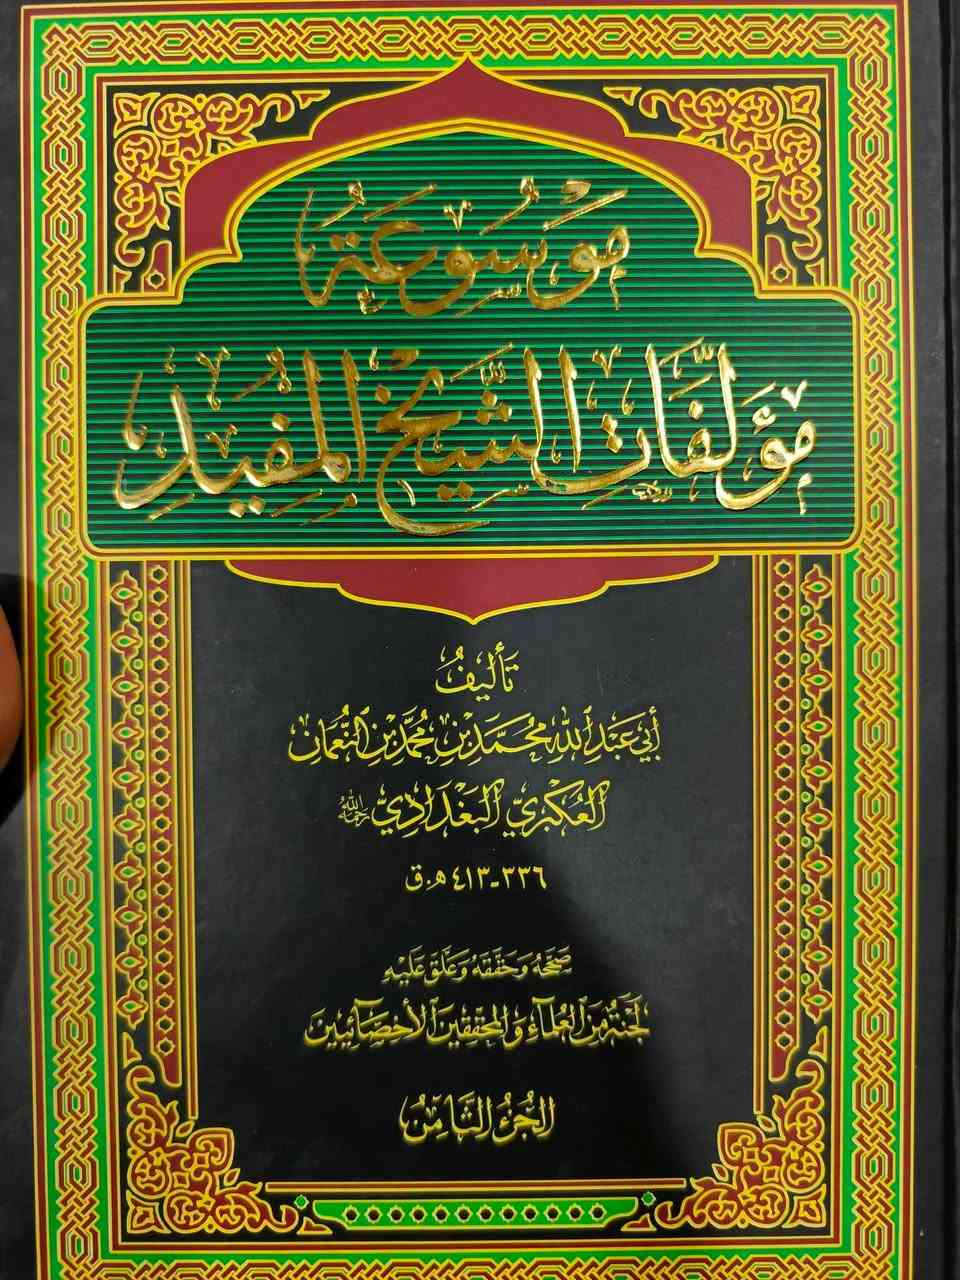 مَوْسُوعَةُ
مُؤَلَّفَاتِ الشَّيْخِ الْمُفِيدِ
تَأليفُ
أبي عَبْدِ اللّٰهِ مُحَمَّد بْنِ مُحَمَّد بْنِ النُّعمَان
العُكبَرِيّ البَغْدَادِيّ رحمه الله
٣٣٦-٤١٣ هـ.ق
صَحَّحَهُ وَحَقَّقَهُ وَعَلَّقَ عَلَيْهِ
لَجْنَةٌ مِنَ العُلَمَاءِ وَالمُحَقِّقِينَ الأَخِصَّائِيِّينَ
الجُزءُ الثَّامِنُ